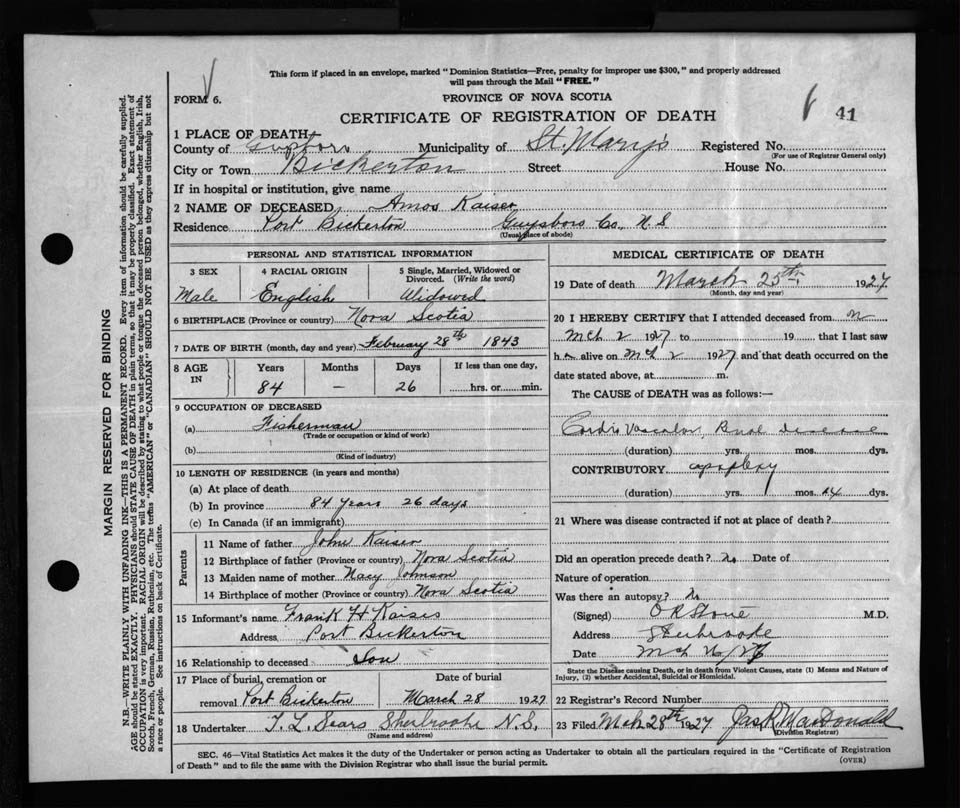 This form if placed in an envelope, marked "Dominion Statistics—Free, penalty for improper use $300," and properly addressed
will pass through the Mail "FREE."
FORM 6.
PROVINCE OF NOVA SCOTIA
CERTIFICATE OF REGISTRATION OF DEATH
41
1 PLACE OF DEATH
County of Municipality of St. Mary's Registered No.
(For use of Registrar General only)
City or Town Bickerton Street House No.
If in hospital or institution, give name
2 NAME OF DECEASED Amos Kaiser
Residence Port Bickerton Guysboro Co., N.S
(Usual place of abode)
PERSONAL AND STATISTICAL INFORMATION
3 SEX 4 RACIAL ORIGIN 5 Single, Married, Widowed or
Divorced. (Write the word)
Male English Widowed
6 BIRTHPLACE (Province or country) Nova Scotia
7 DATE OF BIRTH (month, day and year) February 28th 1843
8 AGE IN Years Months Days If less than one day,
84 — 26 hrs. or min.
9 OCCUPATION OF DECEASED
(a) Fisherman
(Trade or occupation or kind of work)
(b)
(Kind of industry)
10 LENGTH OF RESIDENCE (in years and months)
(a) At place of death
(b) In province 84 years 26 days
(c) In Canada (if an immigrant)
Parents
11 Name of father John Kaiser
12 Birthplace of father (Province or country) Nova Scotia
13 Maiden name of mother Johnson
14 Birthplace of mother (Province or country) Nova Scotia
15 Informant's name Frank H
Address Port Bickerton
16 Relationship to deceased Son
17 Place of burial, cremation or Date of burial
removal Port Bickerton March 28 1927
18 Undertaker Sears Sherbrooke N.S.
(Name and address)
MEDICAL CERTIFICATE OF DEATH
19 Date of death March 25th 1927
(Month, day and year)
20 I HEREBY CERTIFY that I attended deceased from
Mch 2 1927 to 19 that I last saw
h alive on Mch 2 1927 and that death occurred on the
date stated above, at m.
The CAUSE of DEATH was as follows:—
Cardio Vascular Renal disease
(duration) yrs. mos. dys.
CONTRIBUTORY apoplexy
(duration) yrs. mos. dys.
21 Where was disease contracted if not at place of death?
Did an operation precede death? no Date of
Nature of operation
Was there an autopsy? No
(Signed) M.D.
Address Sherbrooke
Date Mch
State the Disease causing Death, or in death from Violent Causes, state (1) Means and Nature of
Injury, (2) whether Accidental, Suicidal or Homicidal.
22 Registrar's Record Number
23 Filed Mch 28th 1927 MacDonald
(Division Registrar)
SEC. 46—Vital Statistics Act makes it the duty of the Undertaker or person acting as Undertaker to obtain all the particulars required in the "Certificate of Registration
of Death" and to file the same with the Division Registrar who shall issue the burial permit.
(OVER)
MARGIN RESERVED FOR BINDING
N.B.—WRITE PLAINLY WITH UNFADING INK—THIS IS A PERMANENT RECORD. Every item of information should be carefully supplied.
AGE should be stated EXACTLY. PHYSICIANS should STATE CAUSE OF DEATH in plain terms, so that it may be properly classified. Exact statement of
OCCUPATION is very important. RACIAL ORIGIN will be described by stating to what people or tongue the deceased person belonged, whether English, Irish,
Scotch, French, German, Russian, Ruthenian, etc. The terms "AMERICAN" or "CANADIAN" SHOULD NOT BE USED as they express citizenship but not
a race or people. See instructions on back of Certificate.